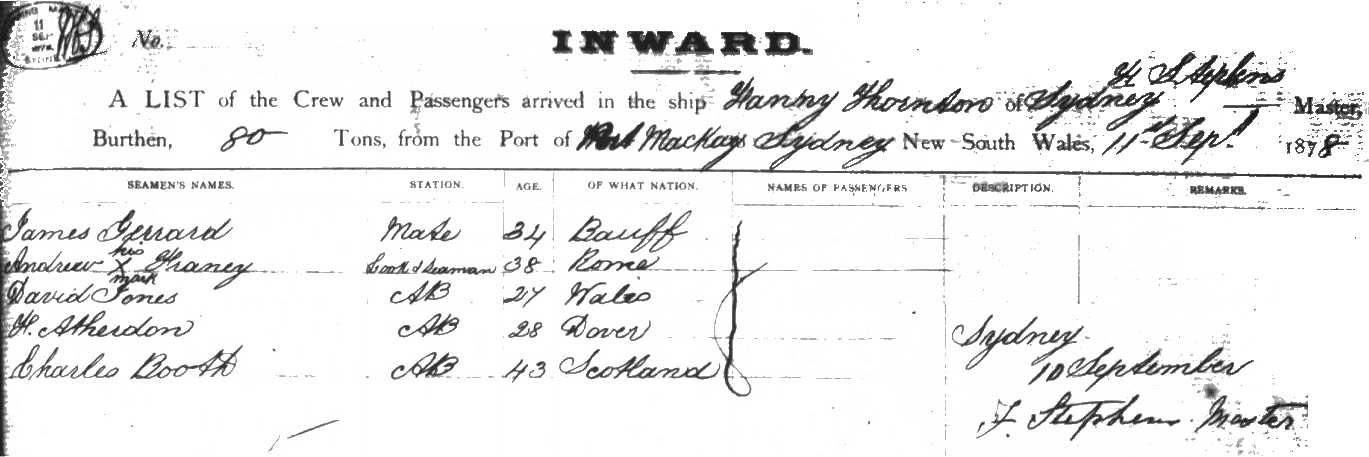 11
SEP
SYDNEY
No.
INWARD.
Stephens
A LIST of the Crew and Passengers arrived in the ship Fanny Thornton of Sydney Master,
Burthen, 80 Tons, from the Port of Port Mackay Sydney New South Wales, 11th Sept. 1878
SEAMEN'S NAMES. STATION. AGE. OF WHAT NATION. NAMES OF PASSENGERS DESCRIPTION. REMARKS.
James Gerrard Mate 34 Banff
his
Andrew X Franey Cook & Seaman 38 Rome
mark
David Jones AB 27 Wales
H. Atherdon AB 28 Dover
Charles Booth AB 43 Scotland
Sydney
10 September
F. Stephens Master